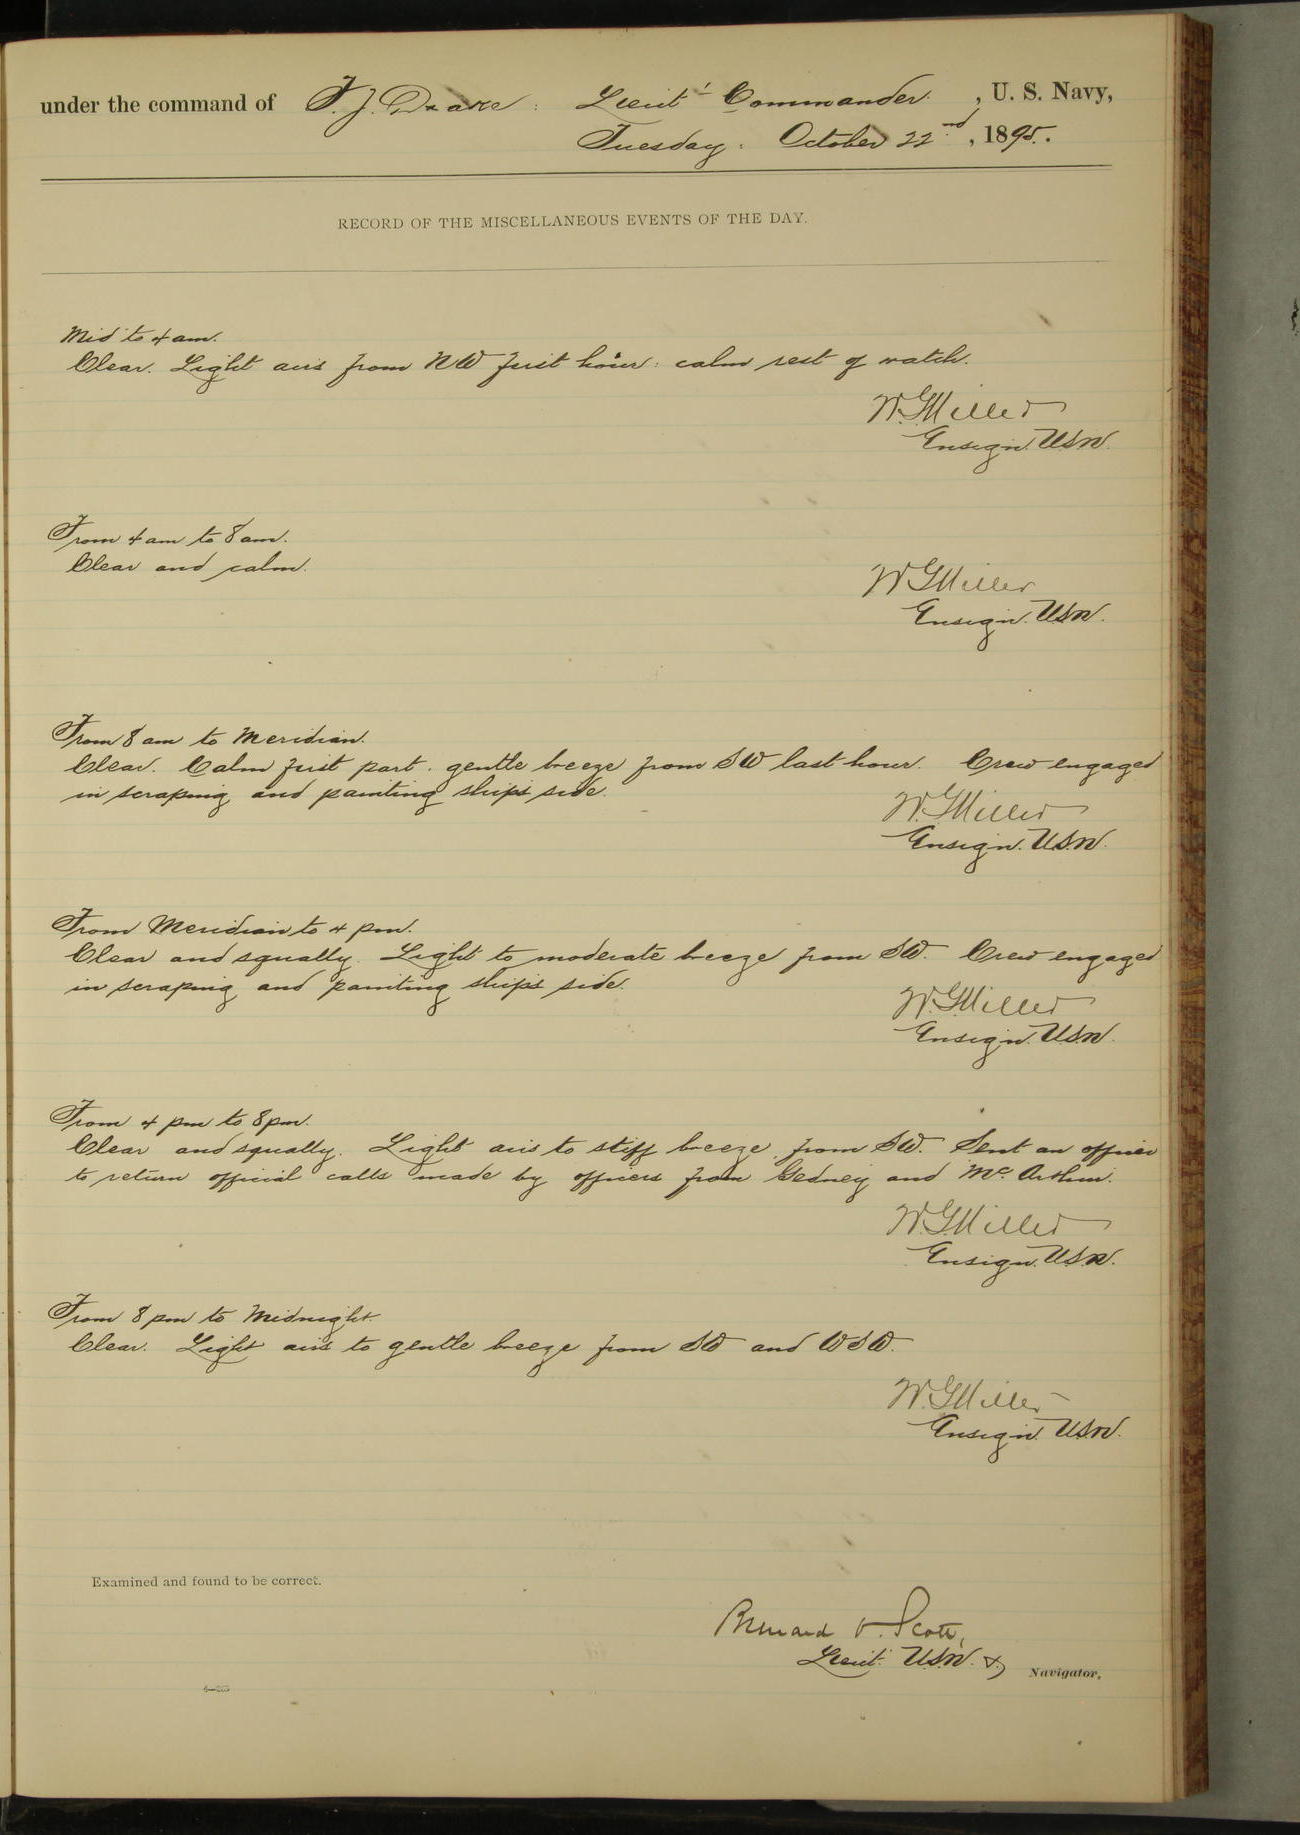 under the command of F. J. Drake: Lieut' Commander. , U. S. Navy,
Tuesday. October 22nd, 1895.
RECORD OF THE MISCELLANEOUS EVENTS OF THE DAY.
Mid to 4 am.
Clear. Light airs from NW first hour: calm rest of watch.
W.G. Miller
Ensign. U.S.N.
From 4 am to 8 am.
Clear and calm.
W.G. Miller
Ensign. U.S.N.
From 8 am to Meridian.
Clear. Calm first part. gentle breeze from SW last hour. Crew engaged
in scraping and painting ships side.
W.G. Miller
Ensign. U.S.N.
From Meridian to 4 pm.
Clear and squally. Light to moderate breeze from SW. Crew engaged
in scraping and painting ships side.
W.G. Miller
Ensign. U.S.N.
From 4 pm to 8 pm.
Clear and squally. Light airs to stiff breeze from SW. Sent an officer
to return official calls made by officers from Gedney and Mc. Arthur.
W.G. Miller
Ensign. U.S.N.
From 8 pm to Midnight.
Clear. Light airs to gentle breeze from SW and WSW.
W.G. Miller
Ensign. U.S.N.
Examined and found to be correct.
Bernard O. Scott,
Lieut. U.S.N. & Navigator.